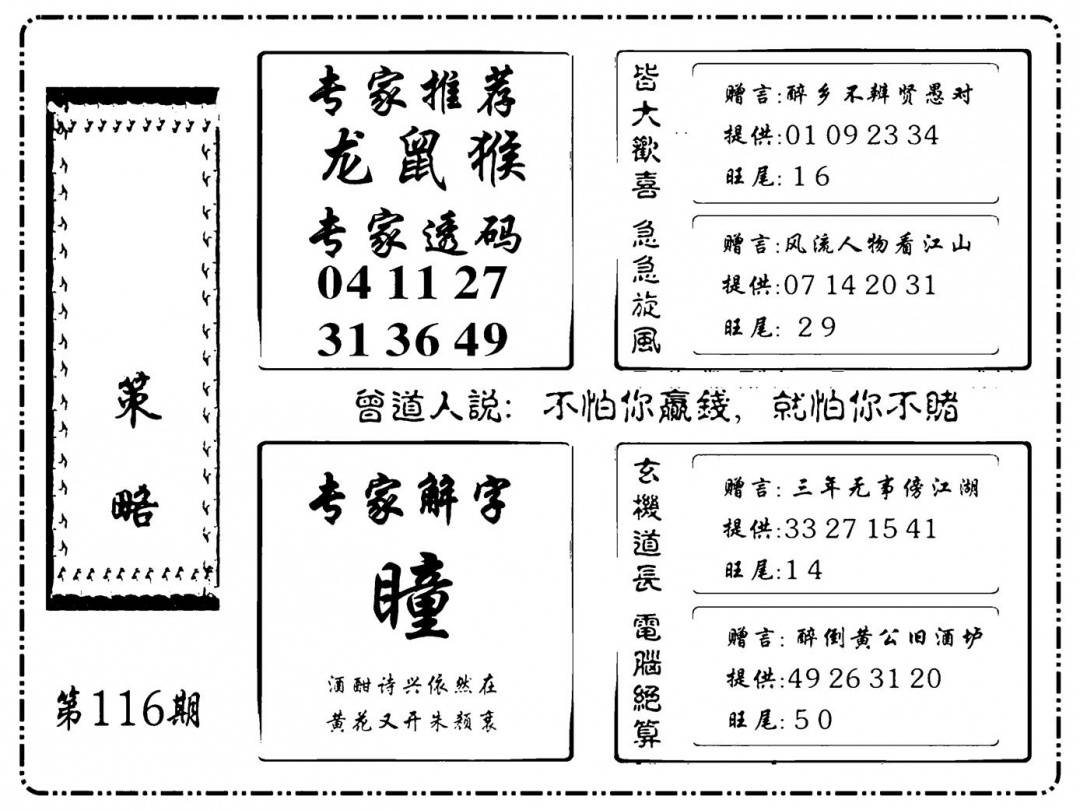 策略
第116期
专家推荐
龙鼠猴
专家透码
04 11 27
31 36 49
皆大歡喜
赠言:醉乡不辨贤愚对
提供:01 09 23 34
旺尾: 1 6
急急旋風
赠言:风流人物看江山
提供:07 14 20 31
旺尾: 2 9
曾道人説: 不怕你贏錢, 就怕你不賭
专家解字
瞳
酒酣诗兴依然在
黄花又开朱颜衰
玄機道長
赠言: 三年无事傍江湖
提供:33 27 15 41
旺尾:1 4
電腦絕算
赠言: 醉倒黄公旧酒垆
提供:49 26 31 20
旺尾: 5 0